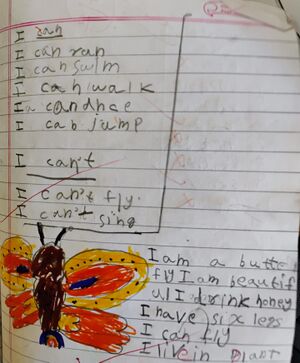 I can
I can ran
I can swim
I can walk
I candnce
I can jump
I can't
I can't fly.
I can't sing
I am a butter
fly I am beautif
ul I drink honey
I have six legs
I can fly
I live in plant